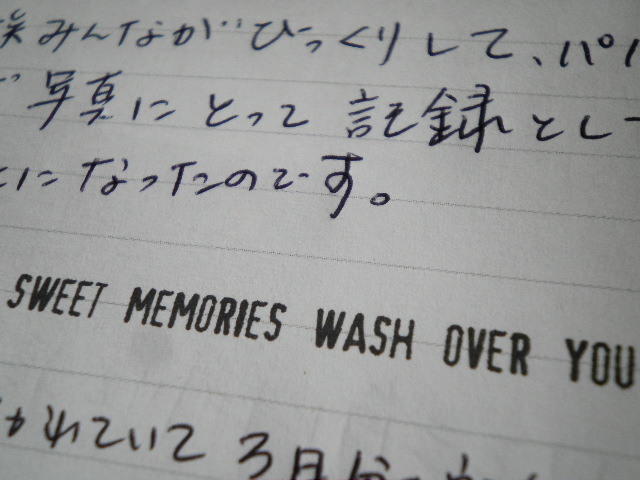 みんながびっくりして、パ
写真にとって記録とし
になったのです。
SWEET MEMORIES WASH OVER YOU
れていて3月